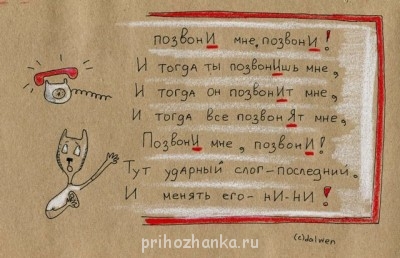 позвонИ мне, позвонИ!
И тогда ты позвонИшь мне,
И тогда он позвонИт мне,
И тогда все позвонЯт мне,
ПозвонИ мне, позвонИ!
Тут ударный слог-последний,
И менять его-нИ-нИ!
(c)dalwen
prihozhanka.ru